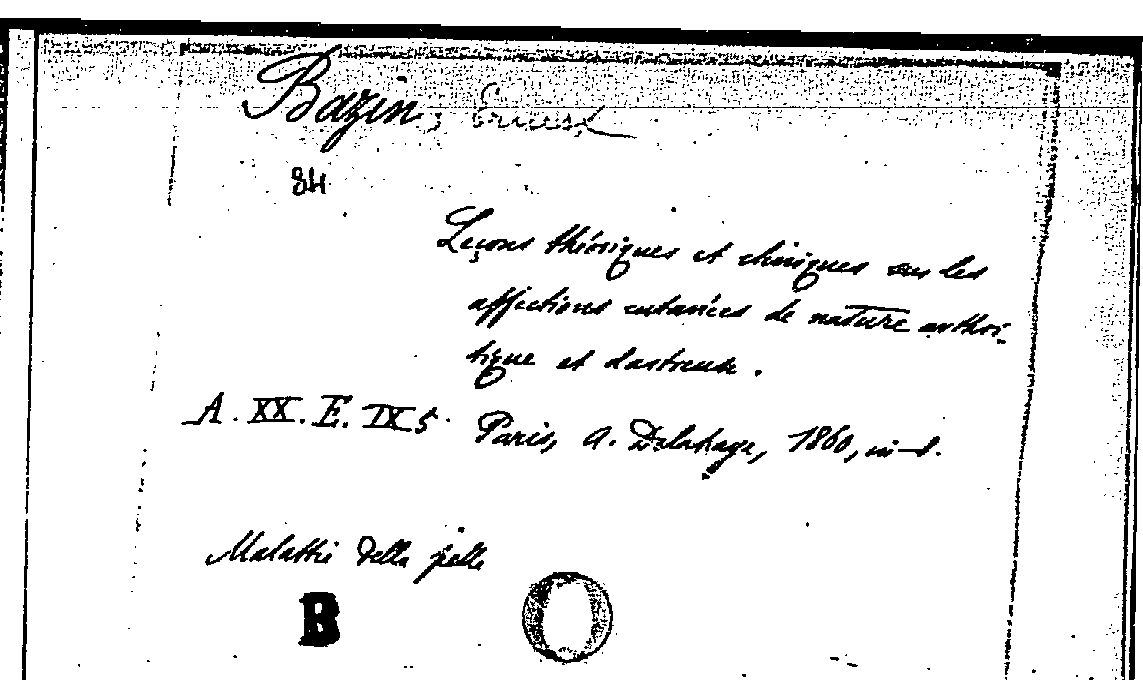 Bazin, Ernest
84
Leçons théoriques et cliniques sur les
affections cutanées de nature arthri-
tique et dartreuse.
A. XX. E. IX 5. Paris, A. Delahaye, 1860, in-8.
Malattie della pelle
B